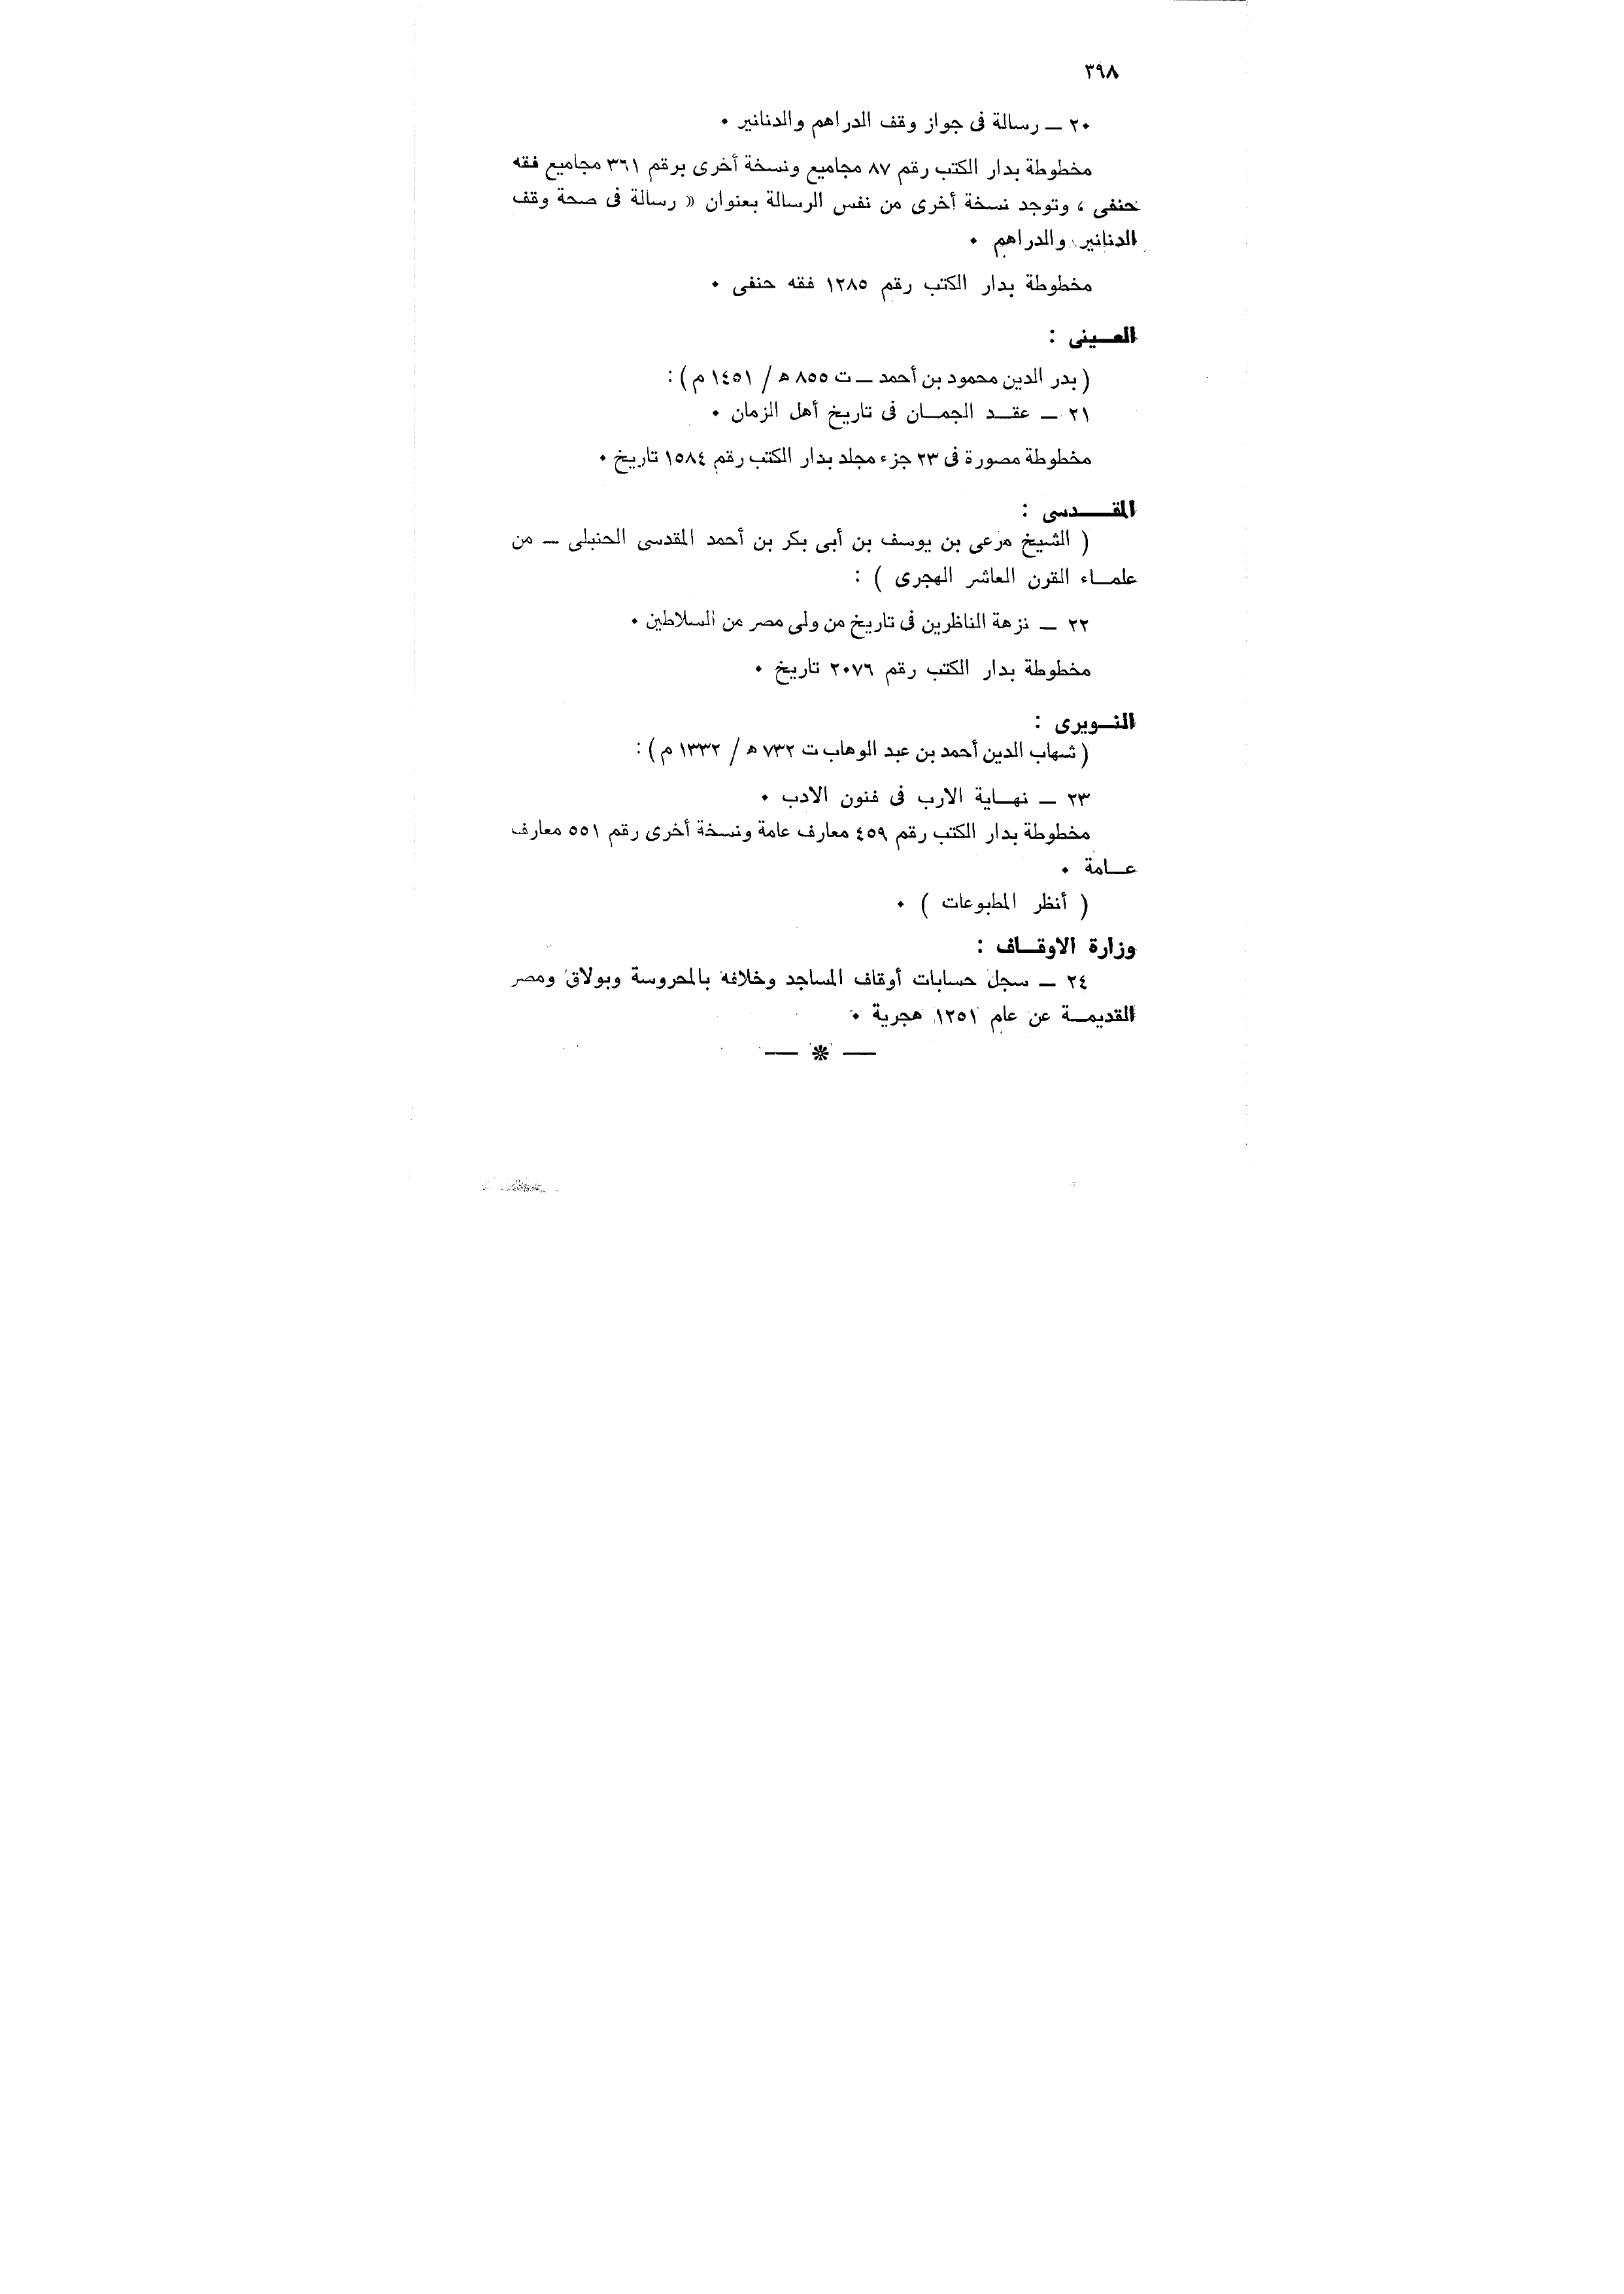 ٣٩٨
٢٠ ــ رسالة فى جواز وقف الدراهم والدنانير ٠
مخطوطة بدار الكتب رقم ٨٧ مجاميع ونسخة أخرى برقم ٣٦١ مجاميع فقه
حنفى ، وتوجد نسخة أخرى من نفس الرسالة بعنوان « رسالة فى صحة وقف
الدنانير والدراهم ٠
مخطوطة بدار الكتب رقم ١٢٨٥ فقه حنفى ٠
العـــينى :
( بدر الدين محمود بن أحمد ــ ت ٨٥٥ ه / ١٤٥١ م ) :
٢١ ــ عقــد الجمــان فى تاريخ أهل الزمان ٠
مخطوطة مصورة فى ٢٣ جزء مجلد بدار الكتب رقم ١٥٨٤ تاريخ ٠
المقـــــدسى :
( الشيخ مرعى بن يوسف بن أبى بكر بن أحمد المقدسى الحنبلى ــ من
علمــاء القرن العاشر الهجرى ) :
٢٢ ــ نزهة الناظرين فى تاريخ من ولى مصر من السلاطين ٠
مخطوطة بدار الكتب رقم ٢٠٧٦ تاريخ ٠
النــويرى :
( شهاب الدين أحمد بن عبد الوهاب ت ٧٣٢ ه / ١٣٣٢ م ) :
٢٣ ــ نهــاية الارب فى فنون الادب ٠
مخطوطة بدار الكتب رقم ٤٥٩ معارف عامة ونسخة أخرى رقم ٥٥١ معارف
عــامة ٠
( أنظر المطبوعات ) ٠
وزارة الاوقــاف :
٢٤ ــ سجل حسابات أوقاف المساجد وخلافه بالمحروسة وبولاق ومصر
القديمــة عن عام ١٢٥١ هجرية ٠